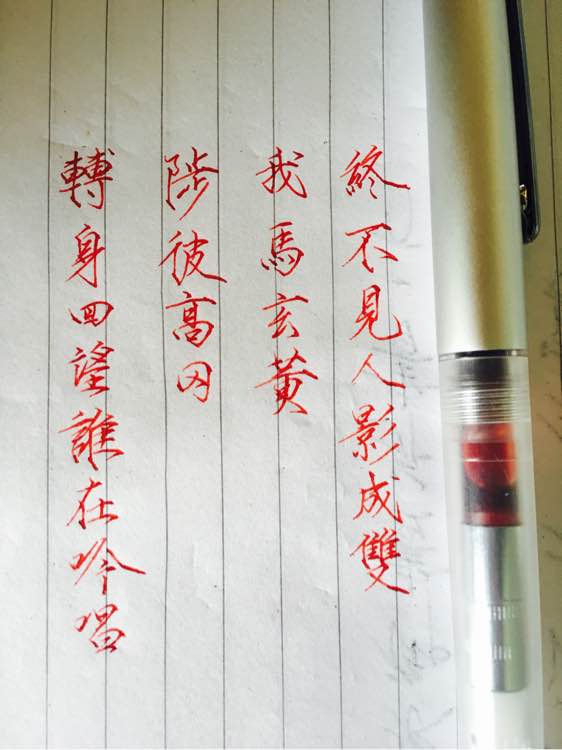 轉身回望誰在吟唱
陟彼高冈
我馬玄黄
終不見人影成雙